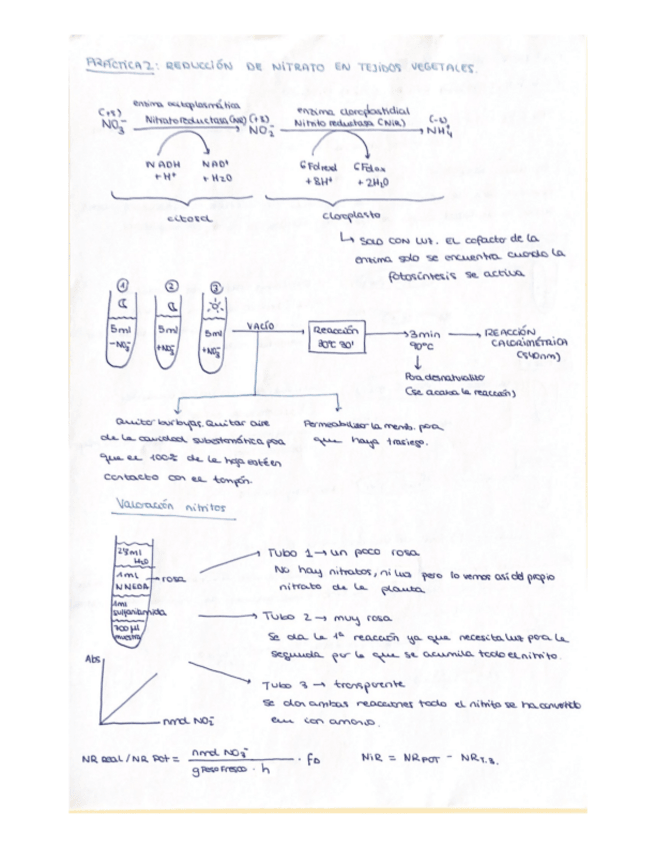 PRÁCTICA 2: REDUCCIÓN DE NITRATO EN TEJIDOS VEGETALES.
enzima citoplasmática
enzima cloroplastidial
(+5) NO3- Nitrato reductasa (NR) (+3) NO2- Nitrito reductasa (NiR) (-3) NH4+
NADH NAD+ 6Fdred 6Fdox
+H+ +H2O +8H+ +2H2O
citosol cloroplasto
↳ SOLO CON LUZ. EL cofactor de la
enzima solo se encuentra cuando la
fotosíntesis se activa
1 2 3
5ml 5ml 5ml
-NO3- +NO3- +NO3-
VACÍO
Reacción
30'
3min
90ºC
REACCIÓN
CALORIMÉTRICA
(540nm)
Para desnaturalizar
(se acaba la reacción)
Quito burbujas. Quitar aire
de la cavidad subestomática para
que el 100% de la hoja esté en
contacto con el tampón.
Permeabilizar la memb. para
que haya trasiego.
Valoración nitritos
H2O
1mL
NNEDA
rosa
1ml
sulfanilamida
muestra
Tubo 1 → un poco rosa
No hay nitratos, ni luz pero lo vemos así del propio
nitrato de la planta
Tubo 2 → muy rosa
Se da la 1ª reacción ya que necesita luz para la
segunda por lo que se acumula todo el nitrito.
Tubo 3 → transparente
Se dan ambas reacciones todo el nitrito se ha convertido
en con amonio.
Abs
nmol NO2-
NR Real / NR Pot = nmol NO2- / g Peso Fresco · h · fD
NiR = NR POT - NR T.3.